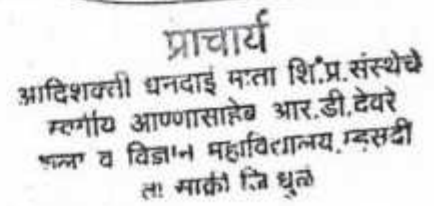 प्राचार्य
आदिशक्ती धनदाई माता शि.प्र.संस्थेचे
स्वर्गीय आण्णासाहेब आर.डी.देवरे
कला व विज्ञान महाविद्यालय,म्हसदी
ता साक्री जि धुळे